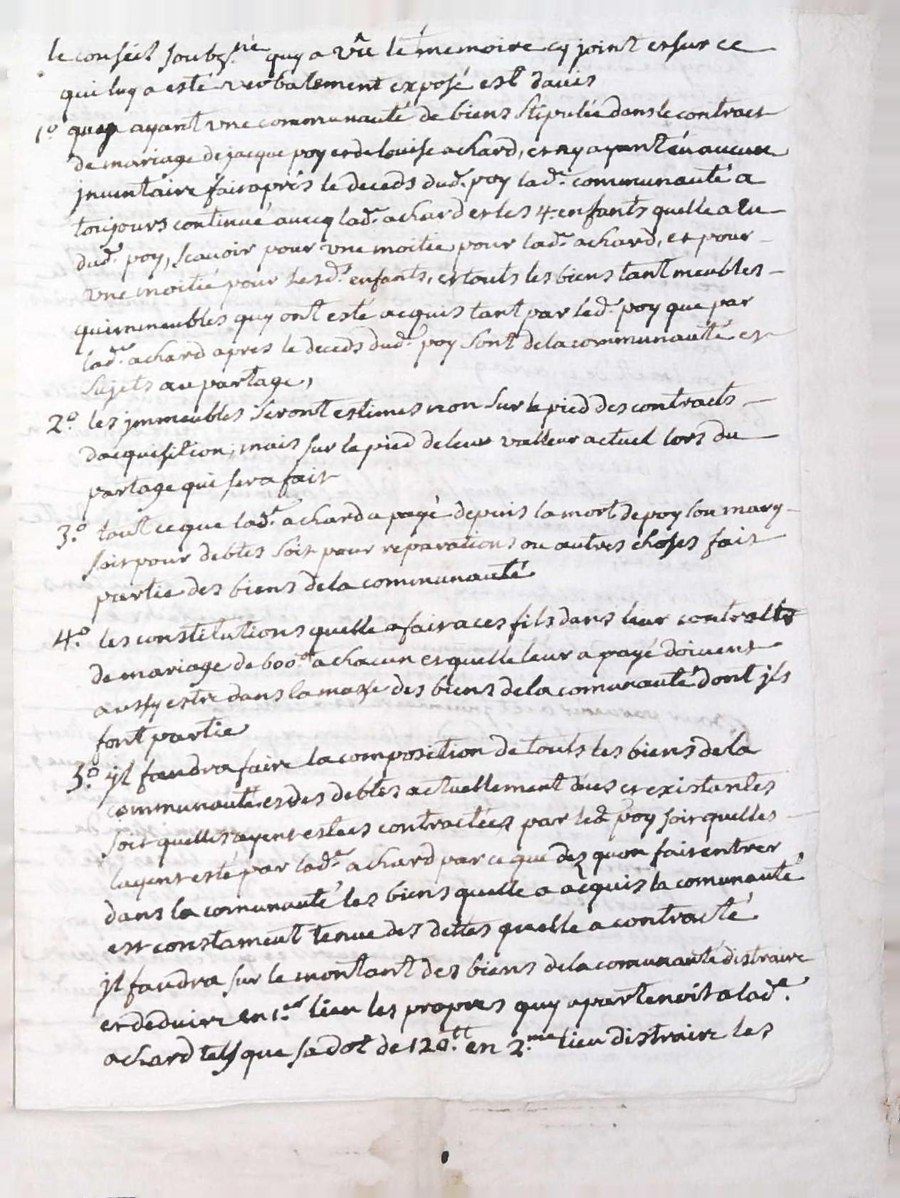 le conseil soubs.né quy a vûe le memoire cy joint et sur ce
qui luy a esté verbalement exposé est davis
1.o quy ayant vne communauté de biens stipulée dans le contract
de mariage de jacque poy et de louise achard, et ny ayant éu aucun
jnventaire fait aprés le deceds dud. poy lad. communauté a
toujours continué auecq lad. achard et les 4 enfants quelle a eu
dud. poy, scauoir pour vne moitie pour lad. achard, et pour
vne moitié pour lesd. enfants, et touts les biens tant meubles
quimmeubles quy ont esté acquis tant par led. poy que par
lad. achard apres le deceds dud. poy sont de la communauté et
sujets au partage,
2.o les jmmeubles seront estimés non sur le pied des contracts
dacquisition, mais sur le pied de leur valleur actuel lors du
partage qui sera fait
3.o tout ce que lad. achard a payé depuis la mort de poy son mary
soit pour debtes soit pour reparations ou autres choses fait
partie des biens de la communauté
4.o les constitutions quelle a fait a ces fils dans leur contratts
de mariage de 600.tt a chacun et quelle leur a payé doivent
aussy estre dans la masse des biens de la comunauté dont jls
font partie
5.o jl faudra faire la composition de touts les biens de la
communauté et des debtes actuellement dues et existantes
soit quelles ayent estees contractées par led. poy soit quelles
layent esté par lad. achard par ce que dez quon fait entrer
dans la comunauté les biens quelle a acquis la comunauté
est constament tenue des dettes quelle a contracté
jl faudra sur le montant des biens de la comunauté distraire
et deduire en 1.er lieu les propres quy apartenoit a lad.
achard tels que sa dot de 120.tt en 2.me lieu distraire les